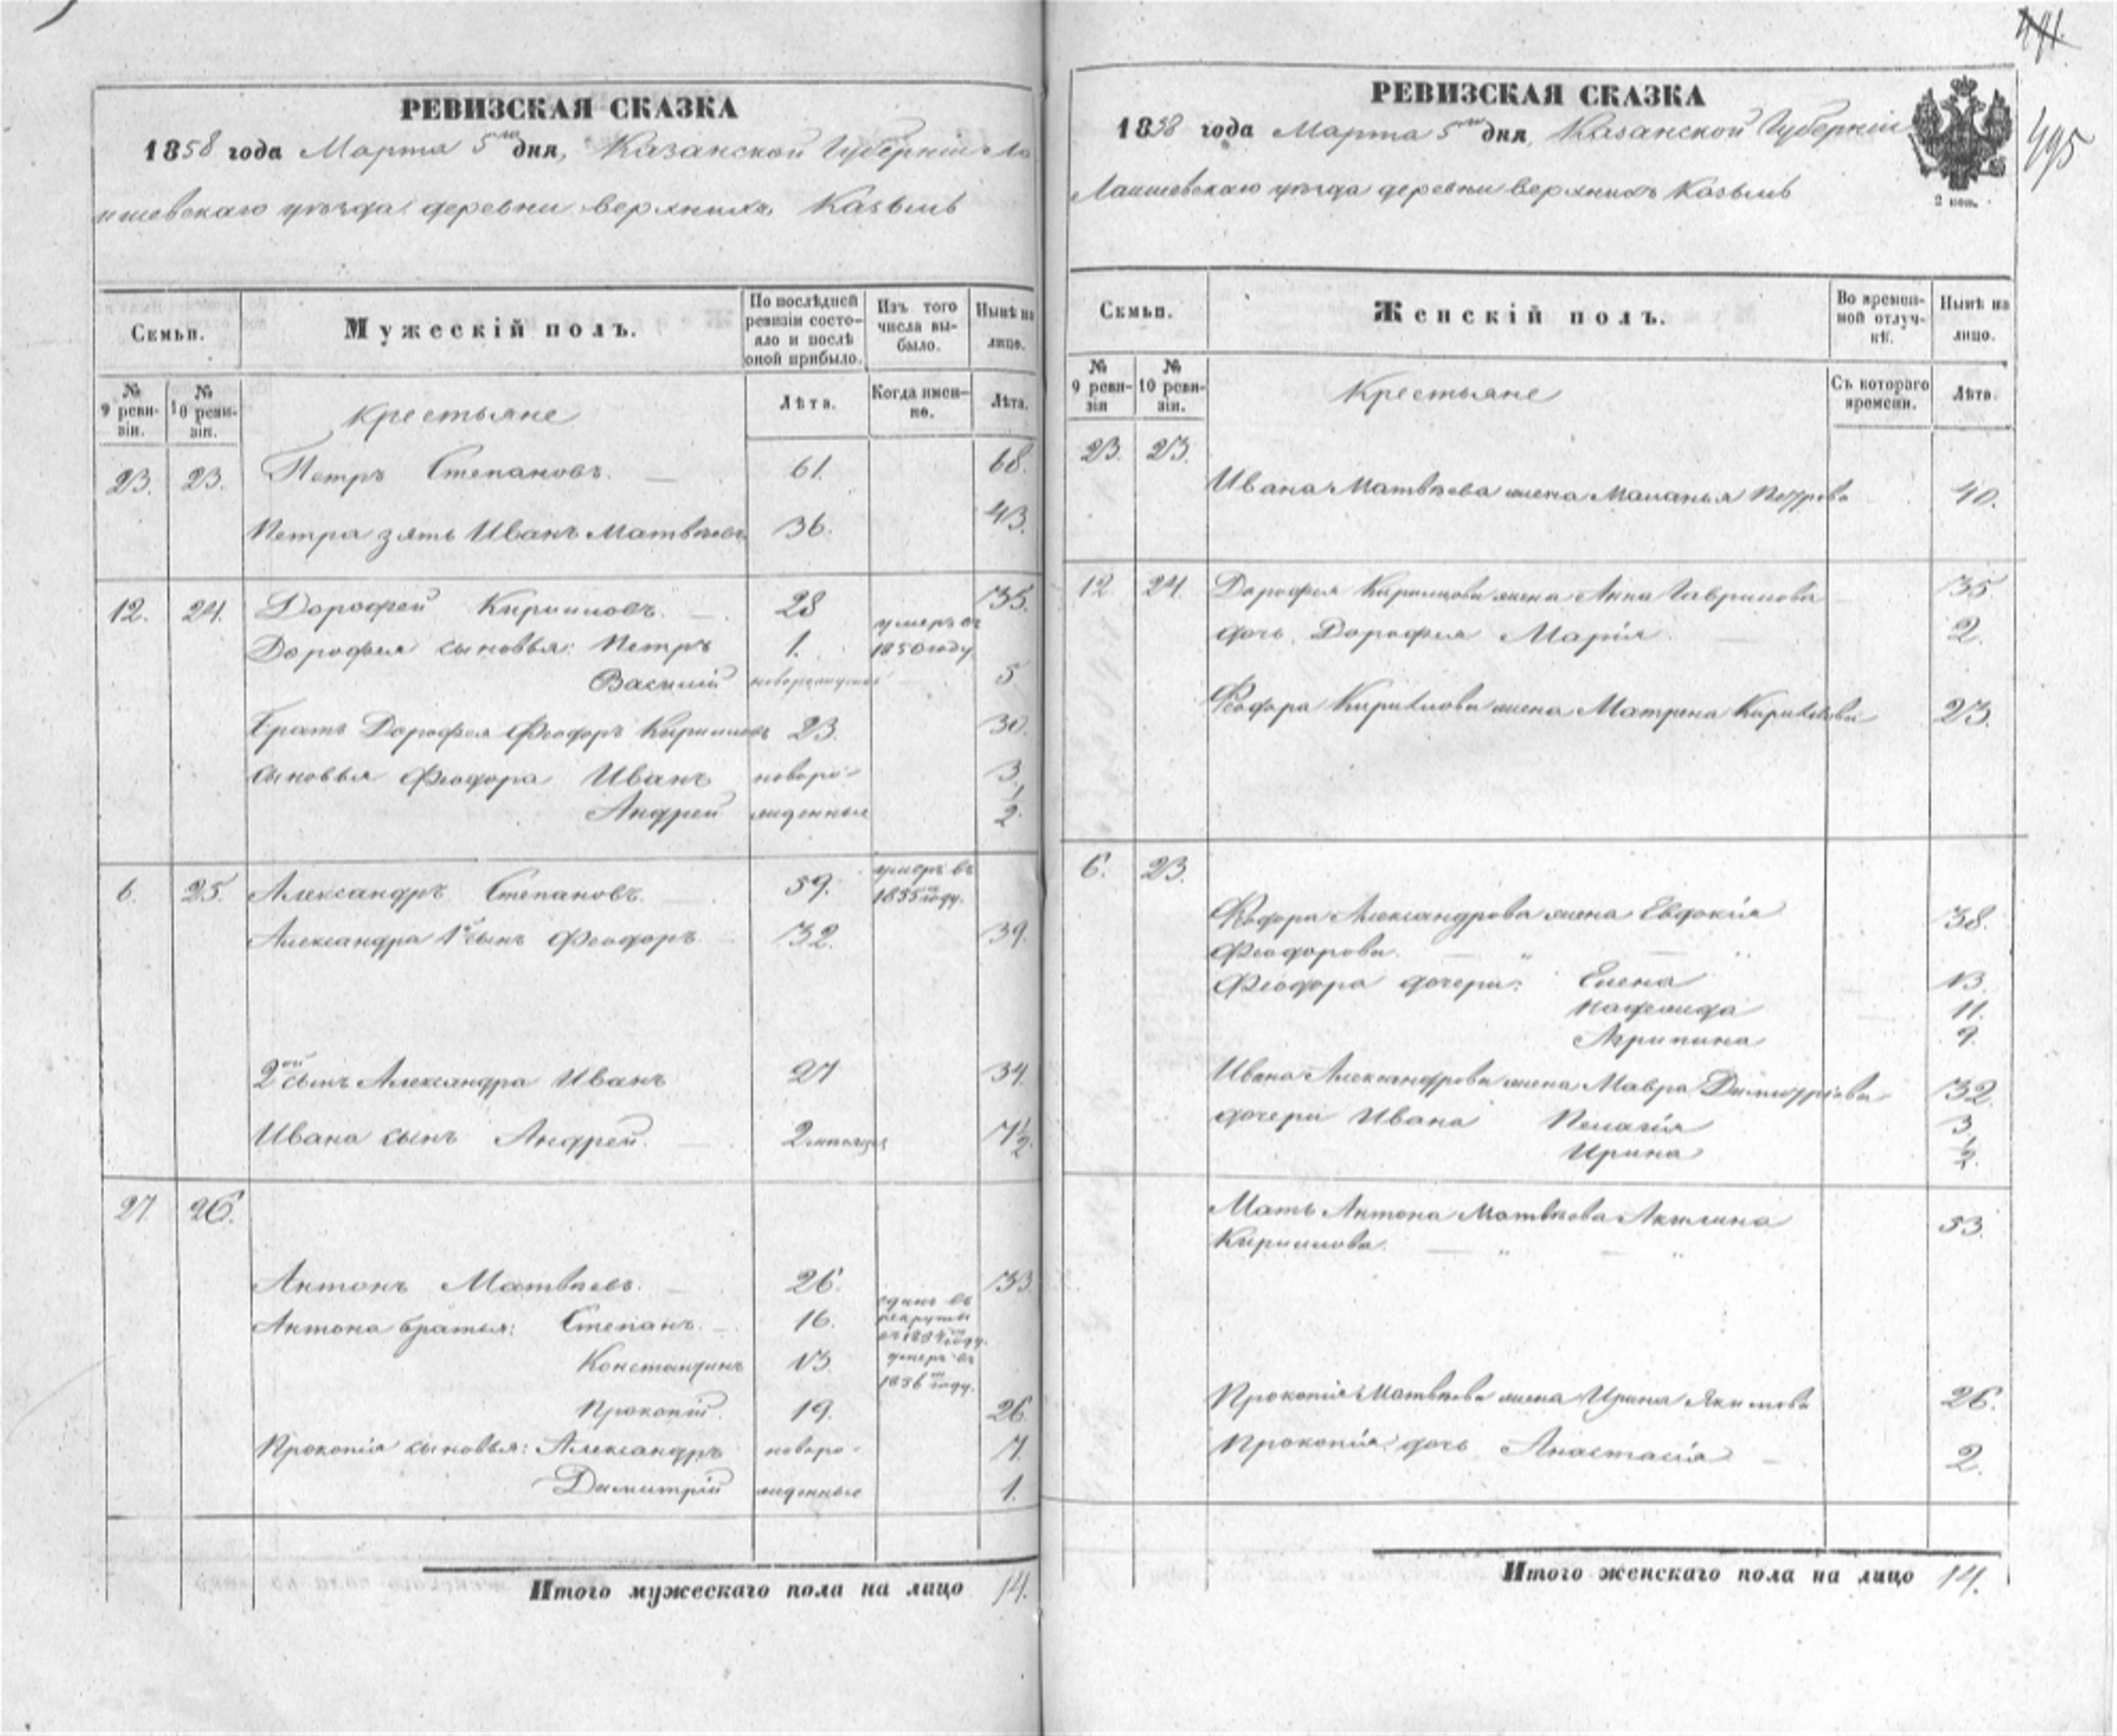 РЕВИЗСКАЯ СКАЗКА
1858 года Марта 5го дня, Казанской Губерніи Ла
ишевскаго уѣзда деревни верхнихъ Казыль
Семьи.
Мужескій полъ.
По послѣдней ревизіи состояло и послѣ оной прибыло.
Изъ того числа выбыло.
Нынѣ на лицо.
№ 9 ревизіи.
№ 10 ревизіи.
крестьяне
Лѣта.
Когда именно.
Лѣта.
23. 23. Петръ Степановъ. 61. 68.
Петра зять Иванъ Матвѣевъ 36. 43.
12. 24. Дорофей Кириловъ. 28 35.
Дорофея сыновья: Петръ 1. умеръ въ 1850 году
Василій новорожденный 5
Братъ Дорофея Феодоръ Кириловъ 23. 30.
сыновья Феодора Иванъ новоро- 3
Андрей жденные 1/2
6. 25. Александръ Степановъ. 59. умеръ въ 1855м году.
Александра 1й сынъ Феодоръ. 32. 39.
2ой сынъ Александра Иванъ 27 34.
Ивана сынъ Андрей. 2 мѣсяца 7 1/2.
27. 26.
Антонъ Матвѣевъ. 26. 33
Антона братья: Степанъ. 16. въ рекруты въ 1854м году.
Константинъ 13. умеръ въ 1856м году.
Прокопій. 19. 26.
Прокопія сыновья: Александръ новоро- 7.
Димитрій жденные 1.
Итого мужескаго пола на лицо 14.
441.
495
РЕВИЗСКАЯ СКАЗКА
1858 года Марта 5го дня, Казанской Губерніи
Лаишевскаго уѣзда деревни верхнихъ Казыль
2 коп.
Семьи.
Женскій полъ.
Во временной отлучкѣ.
Нынѣ на лицо.
№ 9 ревизіи
№ 10 ревизіи.
Крестьяне
Съ котораго времени.
Лѣта.
23. 23.
Ивана Матвѣева жена Маланья Петрова 40.
12. 24. Дорофея Кирилова жена Анна Гаврилова 35.
дочь Дорофея Марія. 2.
Феодора Кирилова жена Матрена Кирилова 23.
6. 23.
Феодора Александрова жена Евдокія 38.
Феодорова. „ „
Феодора дочери: Елена 13.
11.
Агрипина 9.
Ивана Александрова жена Мавра Димитріева 32.
дочери Ивана Пелагія 3.
Ирина 1/2.
Мать Антона Матвѣева Акилина 53.
Кирилова. „ „
Прокопія Матвѣева жена Ирина Якимова 26.
Прокопія дочь Анастасія 2.
Итого женскаго пола на лицо 14.